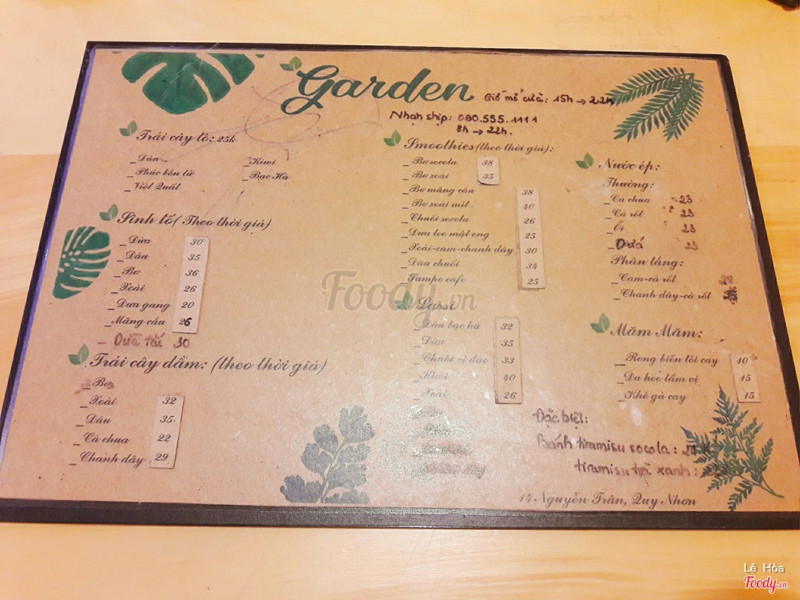 Garden
Giờ mở cửa: 15h → 22h
Nhận ship: 080.555.1111
8h → 22h.
Trái cây tô: 25k
_Dâu
_Phúc bồn tử
_Việt Quất
_Kiwi
_Bạc Hà
Sinh tố (Theo thời giá)
_Dừa 30
_Dâu 35
_Bơ 36
_Xoài 26
_Dưa gang 20
_Mãng cầu 26
_Dừa tắc 30
Trái cây dầm: (theo thời giá)
_Bơ
_Xoài 32
_Dâu 35
_Cà chua 22
_Chanh dây 29
Smoothies (theo thời giá):
_Bơ socola 38
_Bơ xoài 35
_Bơ mãng cầu 38
_Bơ xoài mít 40
_Chuối socola 26
_Dưa leo mật ong 25
_Xoài-cam-chanh dây 30
_Dâu chuối 34
_Tampo cafe 25
Lassi
_Dâu bạc hà 32
_Dâu 35
_Chuối 33
_Kiwi 40
_Xoài 26
Nước ép:
Thường:
_Cà chua 23
_Cà rốt 23
_Ổi 23
_Dứa 23
Phân tầng:
_Cam-cà rốt
_Chanh dây-cà rốt
Măm Măm:
_Rong biển lôi cay 10
_Da heo tắm vị 15
_Khô gà cay 15
Đặc biệt:
Bánh tiramisu socola:
tiramisu trà xanh:
14 Nguyễn Trân, Quy Nhơn
Foody.vn
Lê Hòa
Foody.vn